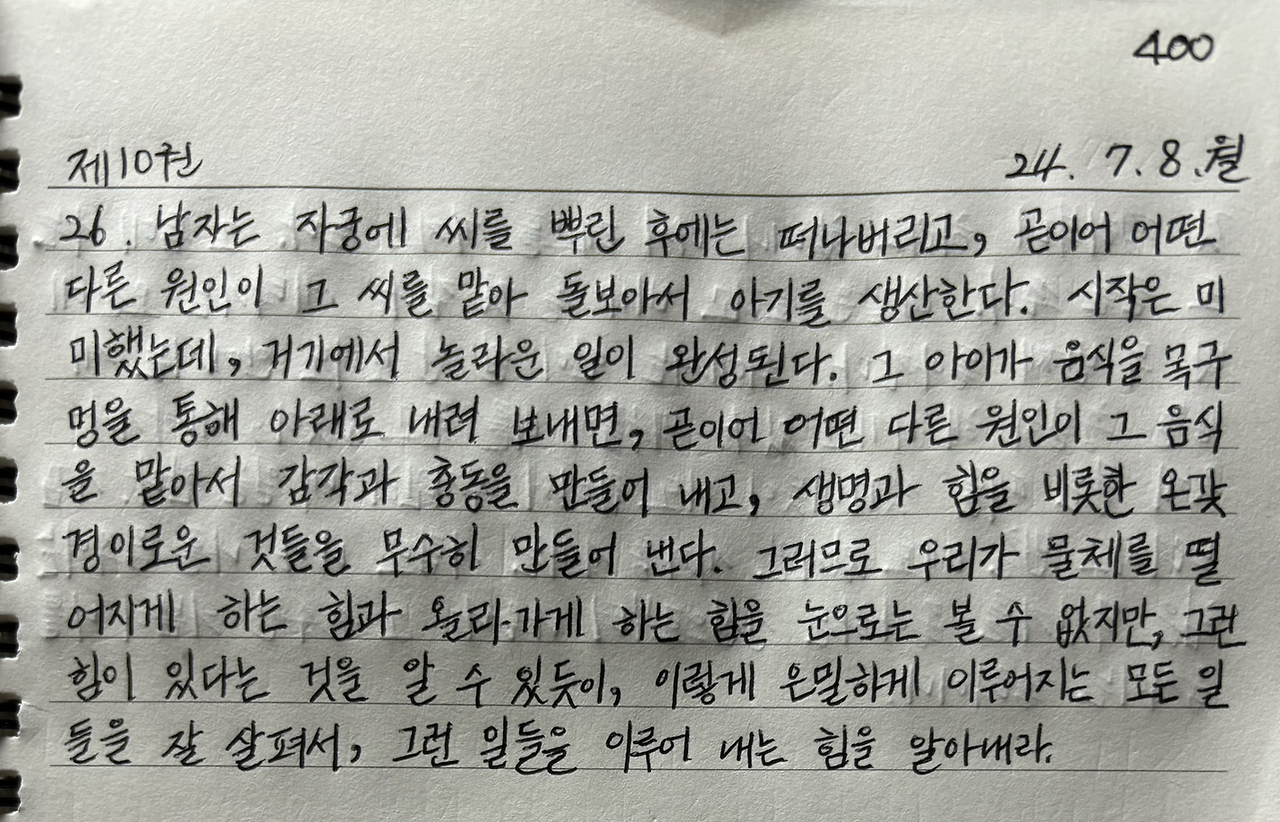 400
제10권 24. 7. 8. 월
26. 남자는 자궁에 씨를 뿌린 후에는 떠나버리고, 곧이어 어떤
다른 원인이 그 씨를 맡아 돌보아서 아기를 생산한다. 시작은 미
미했는데, 거기에서 놀라운 일이 완성된다. 그 아이가 음식을 목구
멍을 통해 아래로 내려 보내면, 곧이어 어떤 다른 원인이 그 음식
을 맡아서 감각과 충동을 만들어 내고, 생명과 힘을 비롯한 온갖
경이로운 것들을 무수히 만들어 낸다. 그러므로 우리가 물체를 떨
어지게 하는 힘과 올라가게 하는 힘을 눈으로는 볼 수 없지만, 그런
힘이 있다는 것을 알 수 있듯이, 이렇게 은밀하게 이루어지는 모든 일
들을 잘 살펴서, 그런 일들을 이루어 내는 힘을 알아내라.